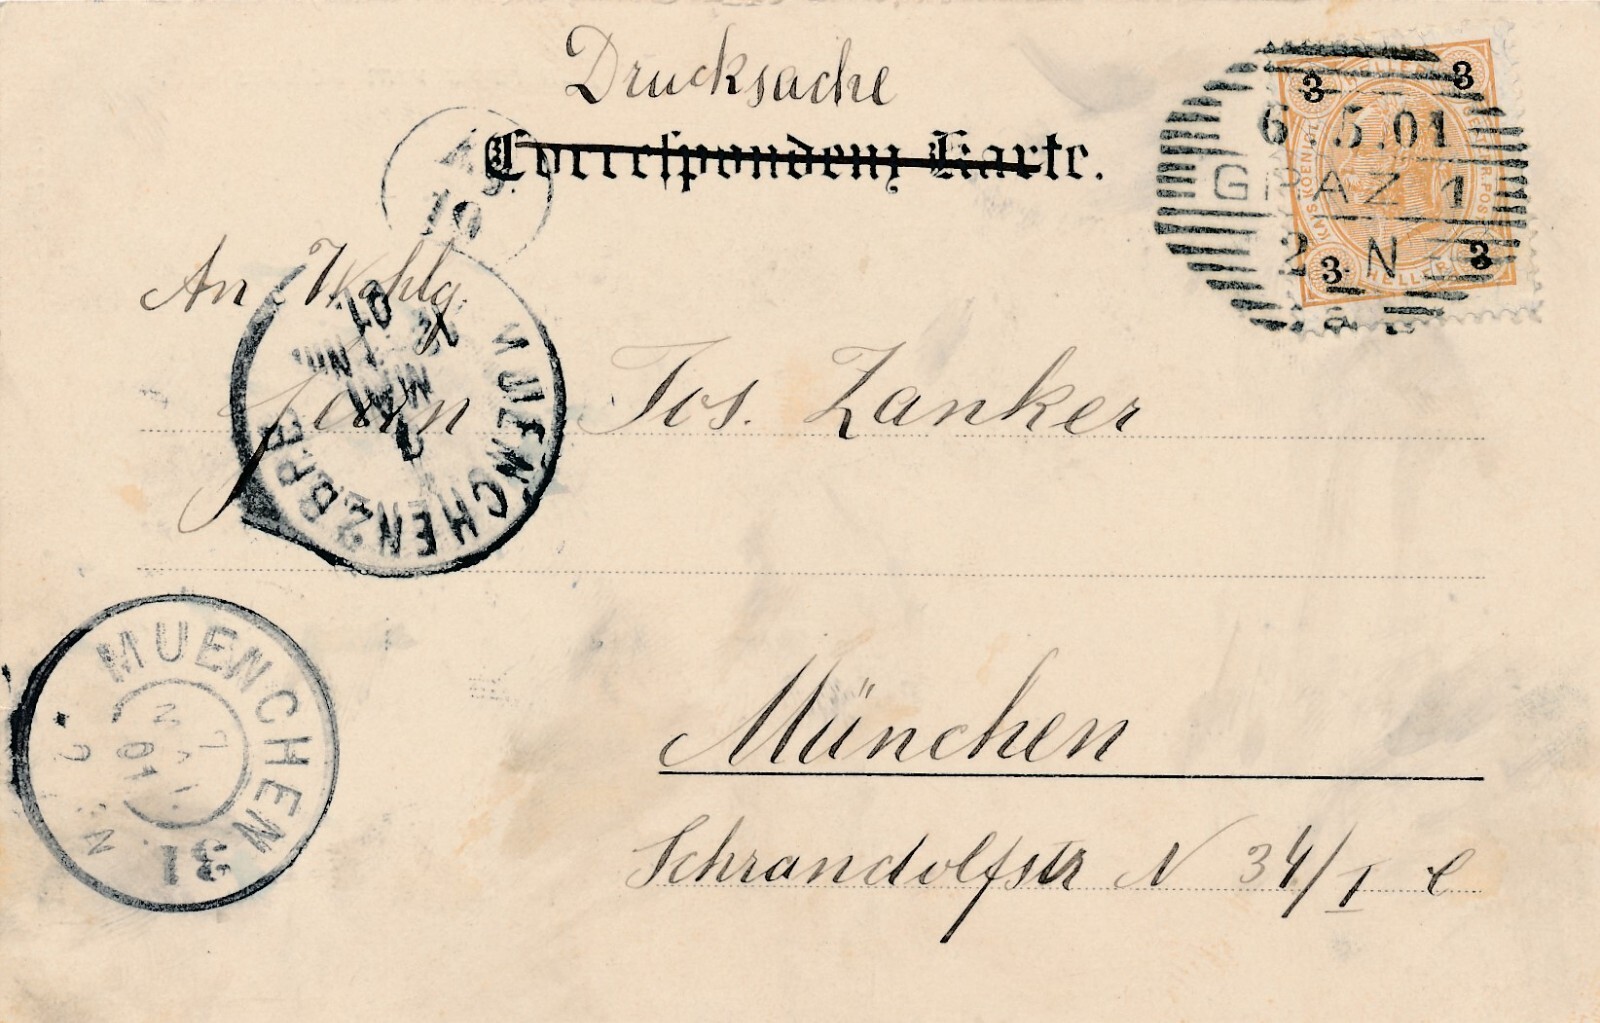 Drucksache
Correspondenz Karte.
3 HELLER 3
KAIS. KOENIGL. ÖSTERR. POST
3 HELLER 3
6.5.01
GRAZ 1
2 N
19
An Wohlg.
Herrn Jos. Zanker
MUENCHEN 2 B.P.E
7
MAI
01
München
Schrandolfstr N 34/I l
MUENCHEN 31
7
MAI
01